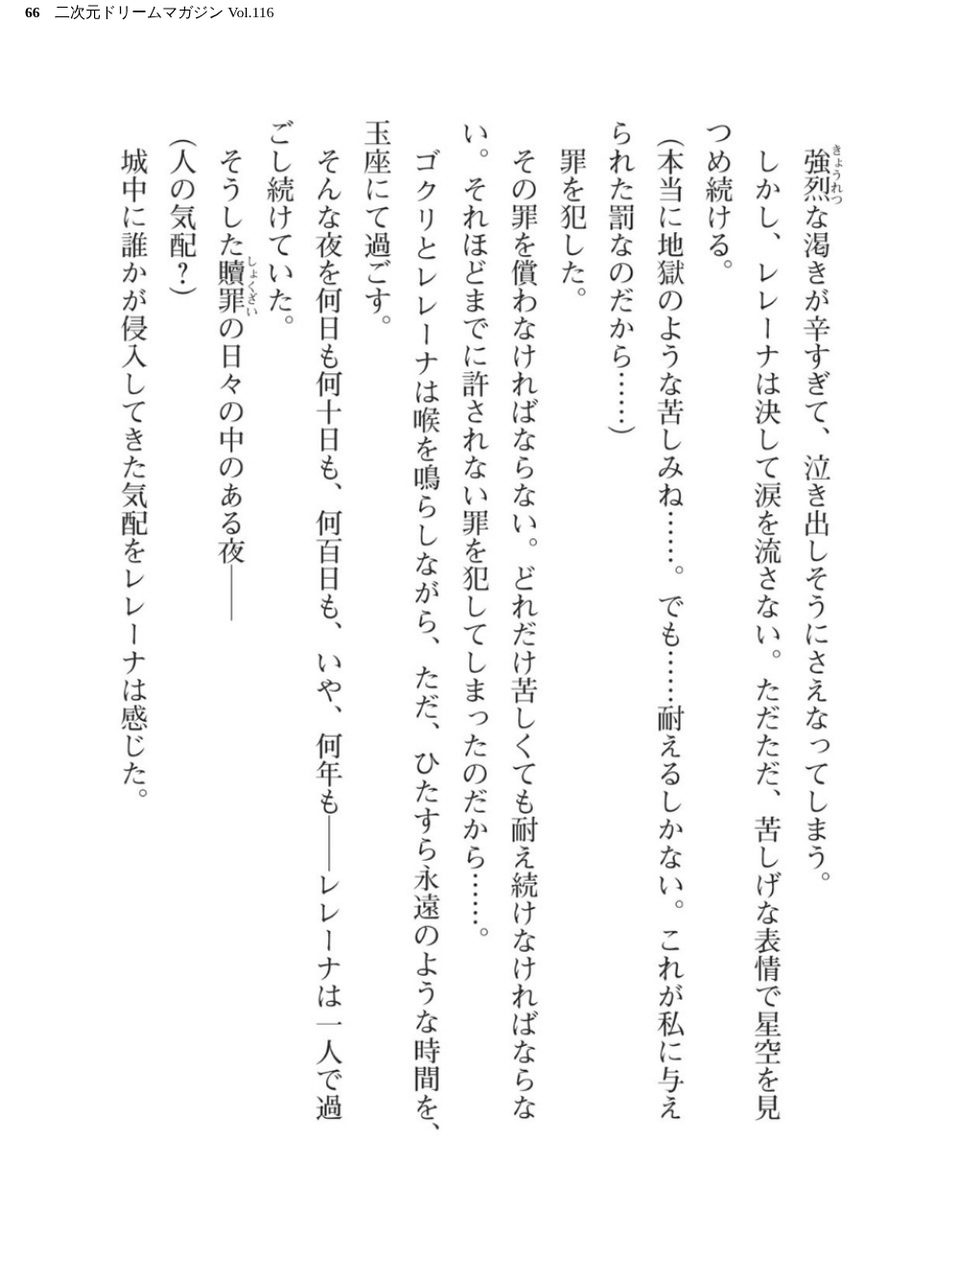 66 二次元ドリームマガジン Vol.116
強烈な渇きが辛すぎて、泣き出しそうにさえなってしまう。
しかし、レレーナは決して涙を流さない。ただただ、苦しげな表情で星空を見
つめ続ける。
（本当に地獄のような苦しみね……。でも……耐えるしかない。これが私に与え
られた罰なのだから……）
罪を犯した。
その罪を償わなければならない。どれだけ苦しくても耐え続けなければならな
い。それほどまでに許されない罪を犯してしまったのだから……。
ゴクリとレレーナは喉を鳴らしながら、ただ、ひたすら永遠のような時間を、
玉座にて過ごす。
そんな夜を何日も何十日も、何百日も、いや、何年も――レレーナは一人で過
ごし続けていた。
そうした贖罪の日々の中のある夜――
（人の気配？）
城中に誰かが侵入してきた気配をレレーナは感じた。
きょうれつ
しょくざい